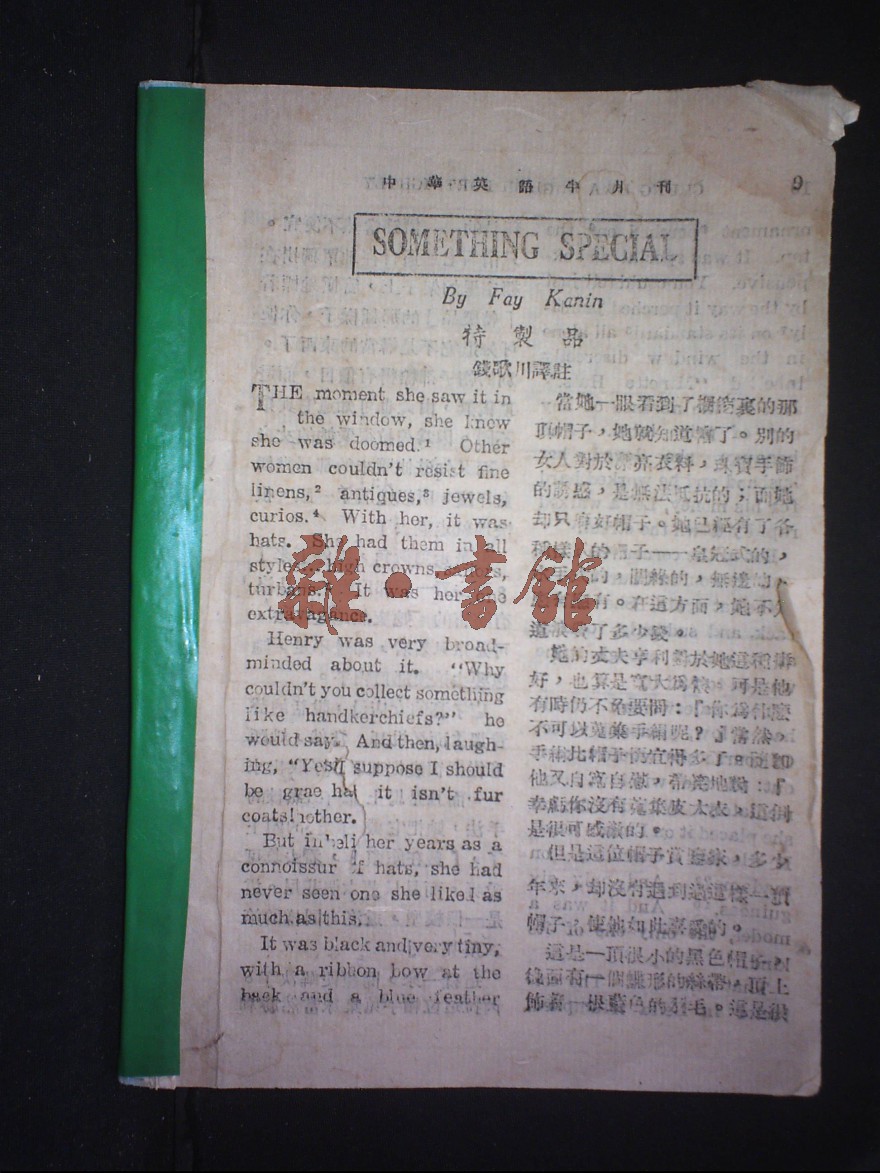 中華英語半月刊
9
SOMETHING SPECIAL
By Fay Kanin
特製品
錢歌川譯註
THE moment she saw it in
the window, she knew
she was doomed.¹ Other
women couldn't resist fine
linens,² antiques,³ jewels,
curios.⁴ With her, it was
hats. She had them in all
styles high crowns,
turbans. It was her
extravagance.
Henry was very broad-
minded about it. "Why
couldn't you collect something
like handkerchiefs?" he
would say. And then, laugh-
ing, "Yes suppose I should
be it isn't fur
coats!
But in her years as a
hats, she had
never seen one she liked as
much as this.
It was black and very tiny,
with a ribbon bow at the
back and a blue feather
當她一眼看到了櫥窗裏的那
頂帽子，她就知道糟了。別的
女人對於亮衣料，珠寶手飾
的誘惑，是無法抵抗的；而她
却只有好帽子。她已經有了各
的帽子——皇冠式的，
的，的，無邊的，
有。在這方面，她不知
道花費了多少錢。
她的丈夫亨利對於她這種嗜
好，也算是寬大爲懷。可是他
有時仍不免要問：「你爲什麼
不可以蒐集手絹呢？」當然，
手絹比帽子便宜得多了。
他又自寬自慰，地說：「
幸虧你沒有蒐集皮大衣，這倒
是很可感激的。」
但是這位帽子賞鑒家，多少
年來，却沒有遇到過這樣一頂
帽子，使她如此喜愛的。
這是一頂很小的黑色帽子，
後面有一個蝶形的絲帶，頂上
飾着一根藍色的羽毛。這是很
雜·書館